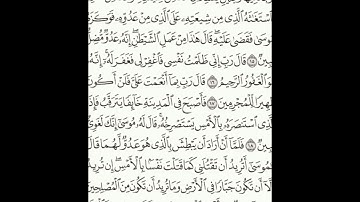 ٱسْتَغَٰثَهُ ٱلَّذِى مِن شِيعَتِهِۦ عَلَى ٱلَّذِى مِنْ عَدُوِّهِۦ فَوَكَزَهُۥ
مُوسَىٰ فَقَضَىٰ عَلَيْهِ ۖ قَالَ هَٰذَا مِنْ عَمَلِ ٱلشَّيْطَٰنِ ۖ إِنَّهُۥ عَدُوٌّ مُّضِلٌّ
مُّبِينٌ ۝١٥ قَالَ رَبِّ إِنِّى ظَلَمْتُ نَفْسِى فَٱغْفِرْ لِى فَغَفَرَ لَهُۥٓ ۚ إِنَّهُۥ
هُوَ ٱلْغَفُورُ ٱلرَّحِيمُ ۝١٦ قَالَ رَبِّ بِمَآ أَنْعَمْتَ عَلَىَّ فَلَنْ أَكُونَ
ظَهِيرًا لِّلْمُجْرِمِينَ ۝١٧ فَأَصْبَحَ فِى ٱلْمَدِينَةِ خَآئِفًا يَتَرَقَّبُ فَإِذَا
ٱلَّذِى ٱسْتَنصَرَهُۥ بِٱلْأَمْسِ يَسْتَصْرِخُهُۥ ۚ قَالَ لَهُۥ مُوسَىٰٓ إِنَّكَ لَغَوِىٌّ
مُّبِينٌ ۝١٨ فَلَمَّآ أَنْ أَرَادَ أَن يَبْطِشَ بِٱلَّذِى هُوَ عَدُوٌّ لَّهُمَا قَالَ
يَٰمُوسَىٰٓ أَتُرِيدُ أَن تَقْتُلَنِى كَمَا قَتَلْتَ نَفْسًۢا بِٱلْأَمْسِ ۖ إِن تُرِيدُ
إِلَّآ أَن تَكُونَ جَبَّارًا فِى ٱلْأَرْضِ وَمَا تُرِيدُ أَن تَكُونَ مِنَ ٱلْمُصْلِحِينَ